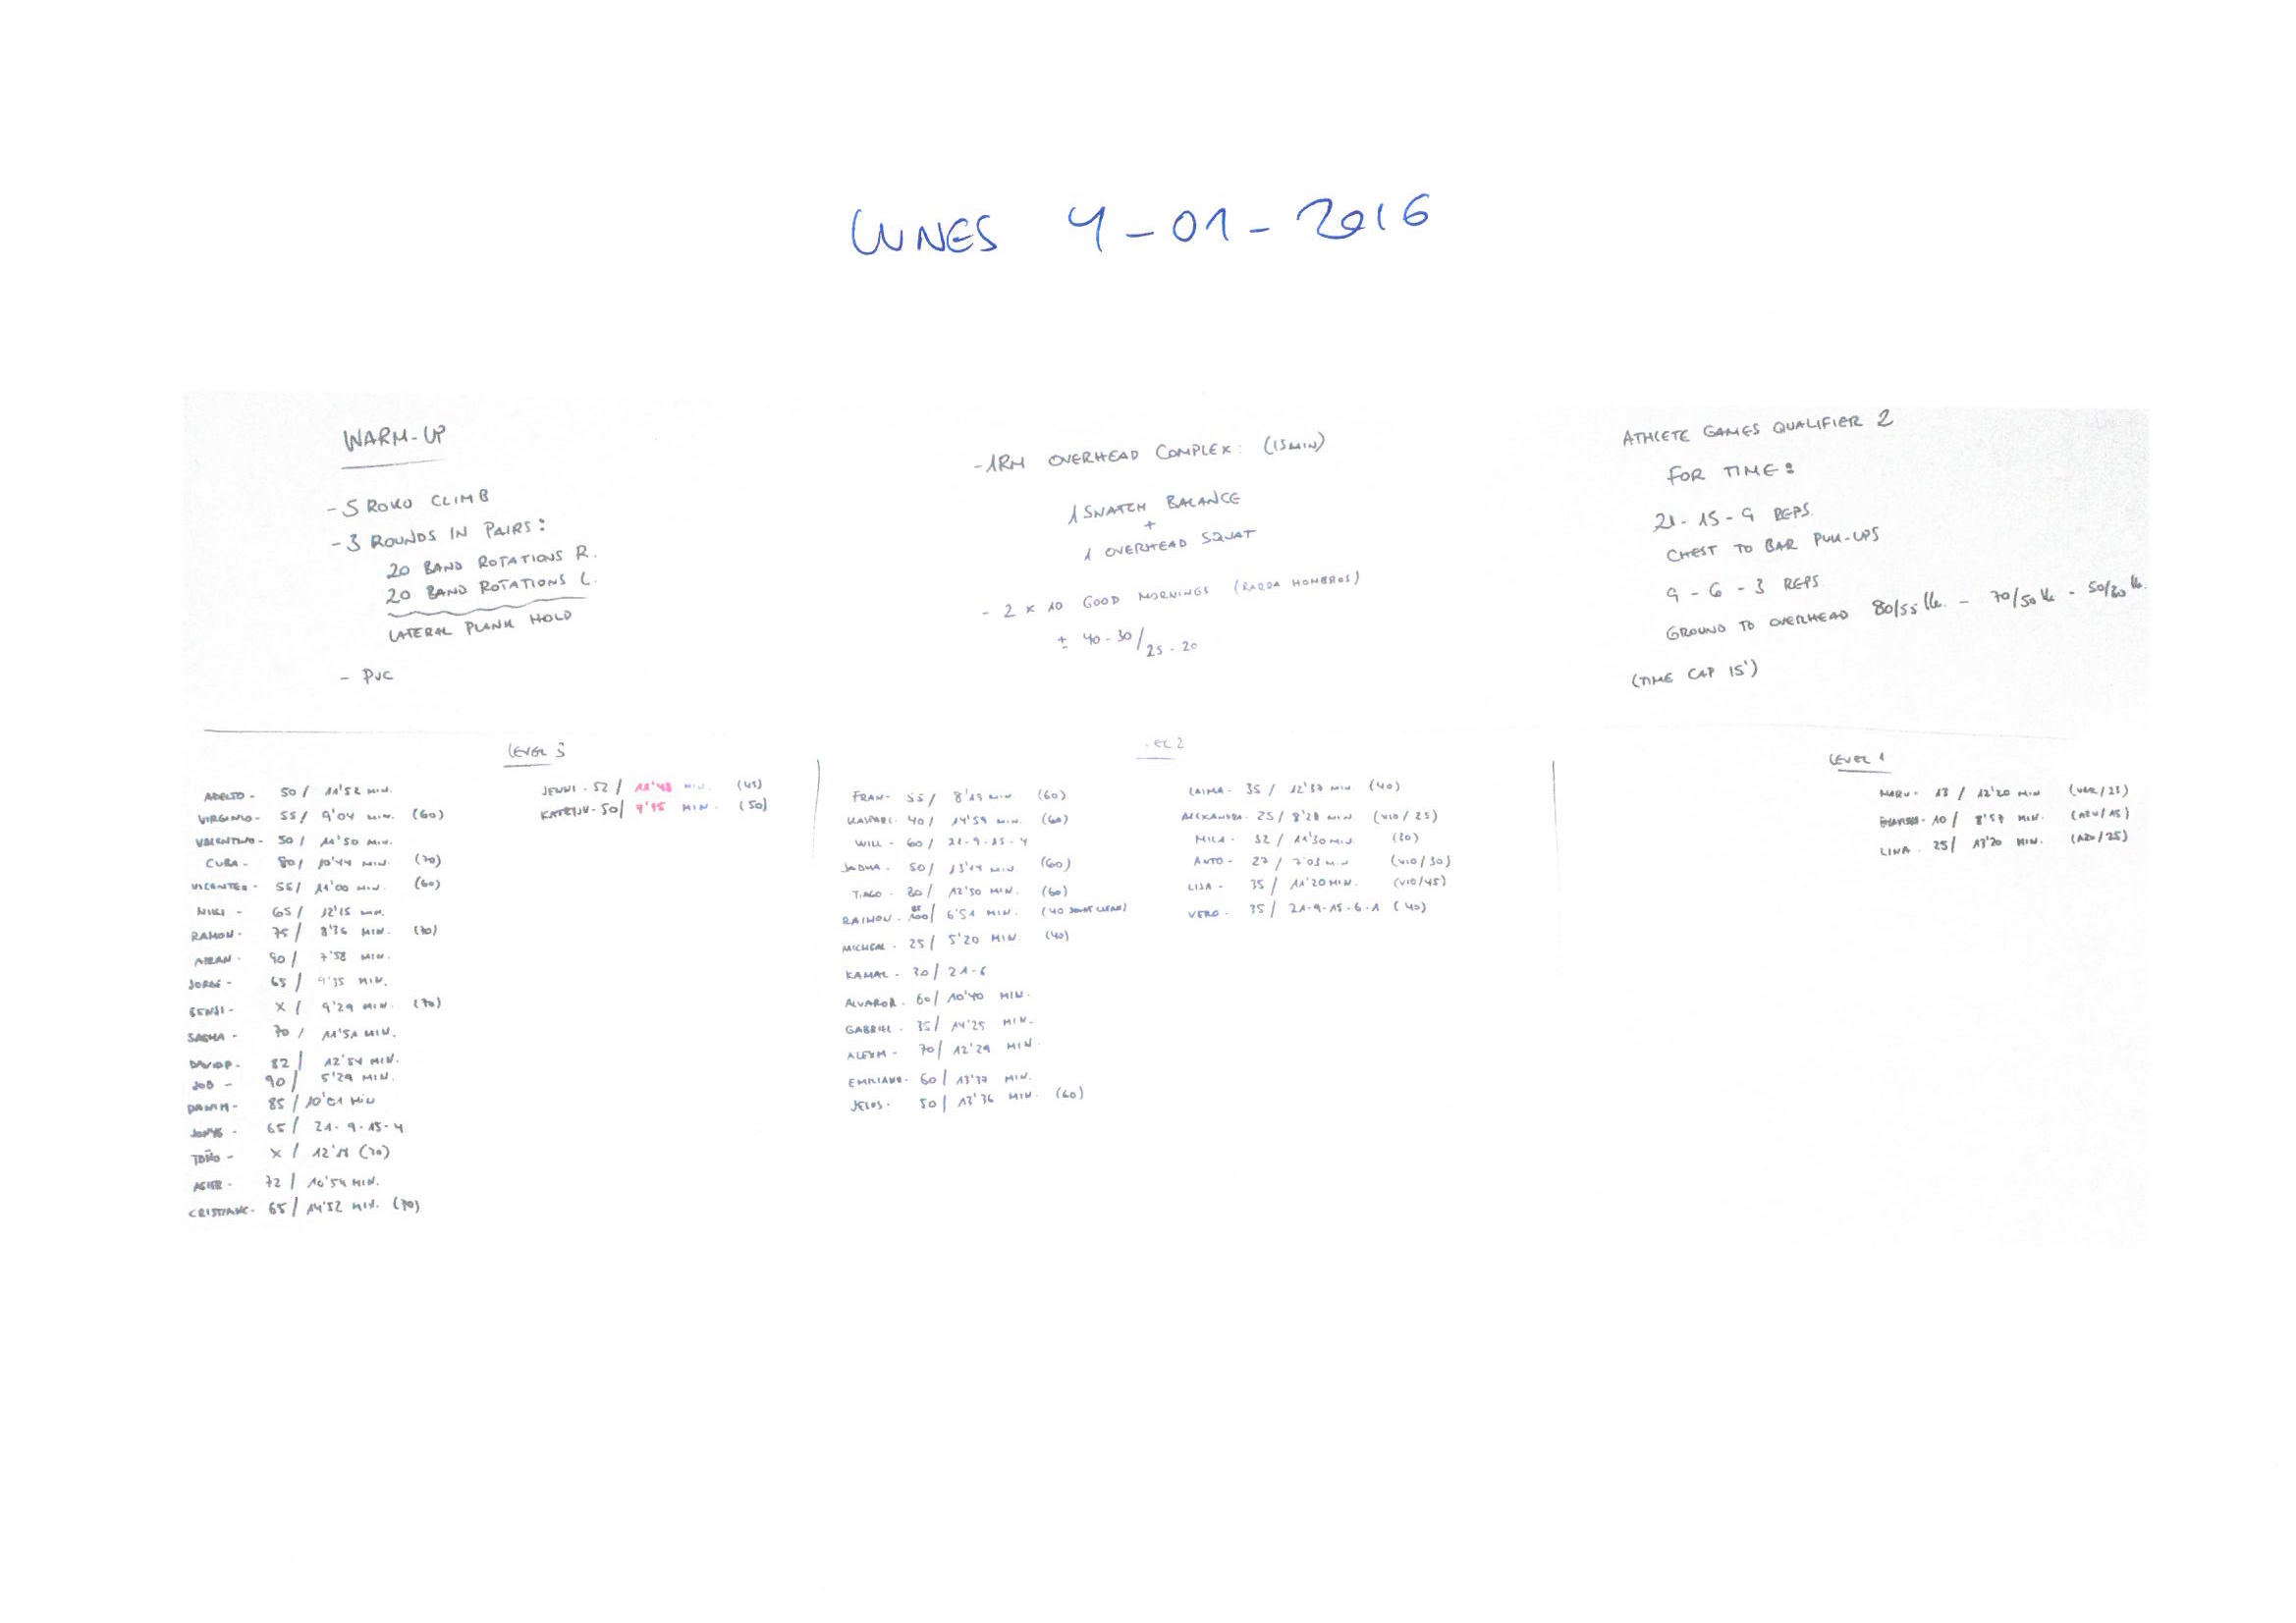 LUNES 4-01-2016
WARM-UP
- 5 ROKO CLIMB
- 3 ROUNDS IN PAIRS:
20 BAND ROTATIONS R.
20 BAND ROTATIONS L.
LATERAL PLANK HOLD
- PVC
- 1RM OVERHEAD COMPLEX: (15MIN)
1 SNATCH BALANCE
+
1 OVERHEAD SQUAT
- 2 x 10 GOOD MORNINGS (HOMBROS)
± 40-30/25-20
ATHLETE GAMES QUALIFIER 2
FOR TIME:
21-15-9 REPS.
CHEST TO BAR PULL-UPS
9-6-3 REPS
GROUND TO OVERHEAD 80/55 - 70/50 - 50/30
(TIME CAP 15')
LEVEL 3
ADELTO - 50 / 11'52 MIN.
VIRGINIO - 55 / 9'04 MIN. (60)
VALENTINO - 50 / 11'50 MIN.
CUBA - 80 / 10'44 MIN. (70)
55 / 11'00 MIN. (60)
NIKI - 65 / 12'15 MIN.
RAMON - 75 / 8'36 MIN. (70)
90 / 7'58 MIN.
JORGE - 65 / 9'35 MIN.
BENJI - X / 9'29 MIN. (70)
SASHA - 70 / 11'51 MIN.
DAVIDP - 82 / 12'54 MIN.
JOB - 90 / 5'29 MIN.
DANIM - 85 / 10'01 MIN
65 / 21-9-15-4
TOÑO - X / (70)
ASIER - 72 / 10'54 MIN.
65 / 14'52 MIN. (70)
JENNI - 52 / 11'48 MIN. (45)
KATRIJN - 50 / 9'15 MIN. (50)
2
FRAN - 55 / 8'19 MIN (60)
40 / 14'59 MIN. (60)
WILL - 60 / 21-9-15-4
50 / 13'14 MIN (60)
TIAGO - 80 / 12'50 MIN. (60)
6'51 MIN. (40)
MICHEAL - 25 / 5'20 MIN. (40)
KAMAL - 30 / 21-6
ALVAROR - 60 / 10'40 MIN.
GABRIEL - 35 / 14'25 MIN.
ALEXM - 70 / 12'29 MIN.
EMILIANO - 60 / 13'37 MIN.
50 / 13'36 MIN. (60)
LAIMA - 35 / 12'37 MIN. (40)
ALEXANDRA - 25 / 8'28 MIN (VIO/25)
MILA - 32 / 11'30 MIN. (30)
ANTO - 27 / 7'03 MIN (VIO/30)
LISA - 35 / 11'20 MIN. (VIO/45)
VERO - 35 / 21-9-15-6-1 (40)
LEVEL 1
MARU - 13 / 12'20 MIN (VER/23)
10 / 8'57 MIN. (AZU/15)
LINA - 25 / 13'20 MIN. (AZU/25)